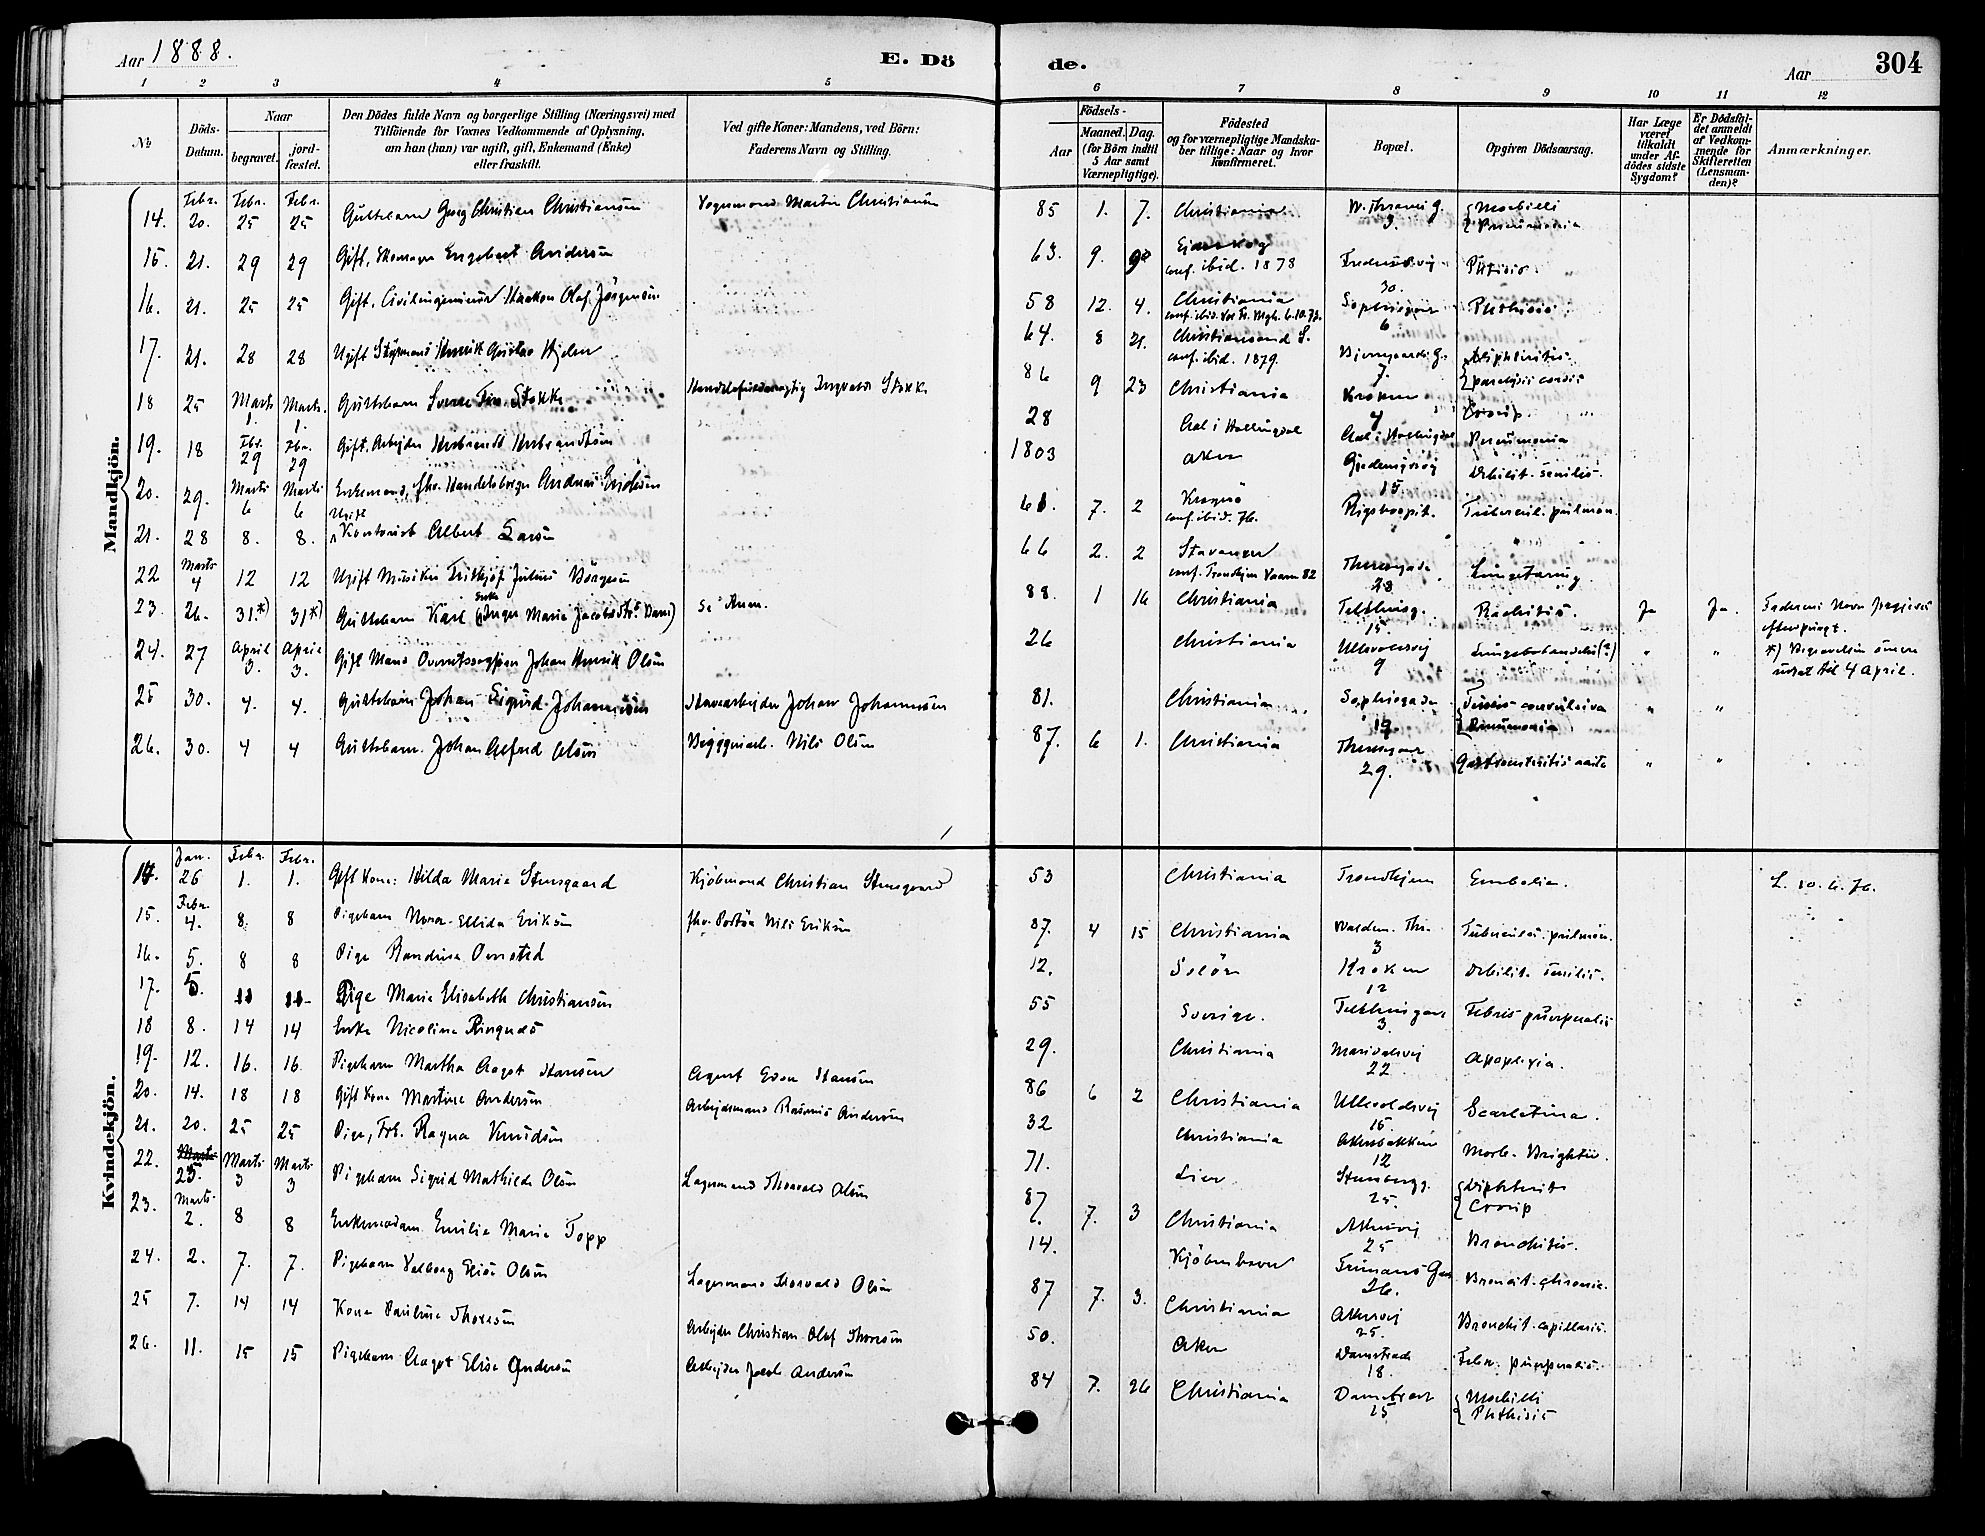 Aar 1888.
E. Dö
de.
Aar
304
1 2 3 4 5 6 7 8 9 10 11 12
No.
Döds-Datum.
Naar
begravet.
jord-fæstet.
Den Dödes fulde Navn og borgerlige Stilling (Næringsvei) med
Tilföiende for Voxnes Vedkommende af Oplysning,
om han (hun) var ugift, gift, Enkemand (Enke)
eller fraskilt.
Ved gifte Koner: Mandens, ved Börn:
Faderens Navn og Stilling.
Födsels-
Aar
Maaned.
Dag.
(for Börn indtil
5 Aar samt
Værnepligtige).
Födested
og for værnepligtige Mandska-
ber tillige: Naar og hvor
konfirmeret.
Bopæl.
Opgiven Dödsaarsag.
Har Læge
været
tilkaldt
under Af-
dödes sidste
Sygdom?
Er Dödsfal-
det anmeldt
af Vedkom-
mende for
Skifteretten
(Lensman-
den)?
Anmærkninger.
Mandkjön.
14. Febr. 20. Febr. 25 Febr. 25 Guttebarn Georg Christian Christiansen Vognmand Martin Christiansen 85 1. 7. Christiania W. Thranes g. 3. Morbilli Pneumonia
15. 21. 29 29 Gift, Skomager Engebret Andersen 63. 9. conf. ibid. 1878 Fredensvej 30. Phtisis
16. 21. 25 25 Gift. Civilingeniør Haakon Olaf Jörgensen 58 12. 4. Christiania Sophiesgade 6 Phthisis
17. 21. 28 28 Ugift Styrmand Henrik Gustav 64. 8 21. Christianssand S. conf. ibid. 1879. Bjerregaards g. 7. Diphtheritis. paralysis cordis
18 25 Marts 1. Marts 1. Guttebarn Sverre Stokke Handelsfuldmægtig Ingvald Stokke 86 9 23 Christiania Kroken 4 Croup.
19. 18 Febr. 29 Febr. 29 Gift. Arbejder Herbrandt Herbrandsen 28 Aal i Hallingdal Aal i Hallingdal Pneumonia
20. 29. Marts 6 Marts 6 Enkemand, fhv. Handelsborger Andreas Eriksen 1803 Aker 15. Debilit. senilis.
21. 28 8. 8. Ugift Kontorist Albert Larsen 61. 7. 2 Kragerö conf. ibid. 76. Rigshospit. Tubercul. pulmon.
22 Marts 4 12 12 Ugift Musiker Fritkjof Julius Börgesen 66 2. 2 Stavanger conf. Trondhjem Vaaren 82 Theresegade 23 Lungetæring.
23. 26. 31.*) 31*) Guttebarn Karl (Enke Inger Marie Jacobsdtr.s Barn) Se Anm. 88. 1 16 Christiania Telthusg. 15. Rachitis. Ja Ja. Faderens Navn opgives
24. 27 April 3. April 3. Gift Mand Johan Henrik Olsen 26 Christiania Ullevoldsvej 9 (?) " " *) Begravelsen udsat til 4 April.
25 30. 4. 4. Guttebarn Johan Sigurd Johannesen Johan Johannesen 81. Christiania Sophiesgade Tussis convulsiva Pneumonia " "
26. 30. 4 4 Guttebarn. Johan Alfred Olsen Nils Olsen 87. 6 1. Christiania Theresegade 29. Gastroenteritis acuta " "
Kvindekjön.
14. Jan. 26 Febr. 1. Febr. 1. Gift Kone: Hilda Marie Stensgaard Kjöbmand Christian Stensgaard 53 Christiania Trondhjem Embolia.
15. Febr. 4. 8. 8 Pigebarn Nora Ellida Eriksen fhv. Nils Eriksen 87. 4 15 Christiania Waldem. Thr. 3 Tubercul. pulmon.
16. 5. 8 8 Pige Randine 12. Solör Kroken 12 Debilit. senilis.
17. 5. 11 11 Pige Marie Elisabeth Christiansen 55 Sverige. Telthusgade 3. Febris puerperalis
18 8. 14 14 Enke Nicoline Ringnes 29. Christiania Maridalsvej 22 Apoplexia.
19. 12. 16. 16. Pigebarn Martha Aagot Hansen Agent Even Hansen 86 6 2 Christiania Ullevoldsvej 15 Scarlatina.
20. 14. 18 18 Gift Kone Martine Andersen Arbejdsmand Rasmus Andersen 32 Christiania Akersbakken 12 Morb. Brightii.
21. 20. 25 25 Pige, Frk. Ragna Knudsen 71. Lier Stensbergg. 25. Diphterit Croup
22. 25. Marts 3 Marts 3 Pigebarn Sigrid Mathilde Olsen Lagermand Thorvald Olsen 87 7. 3 Christiania Akersvej 25 Bronchitis.
23. Marts 2. 8 8 Enkemadam Emilie Marie Topp 14. Kjöbenhavn 26. Bronchit. chronic.
24. 2. 7. 7. Pigebarn Valborg Elise Olsen Lagermand Thorvald Olsen 87 7. 3. Christiania Akersvej 25. Bronchit. capillaris.
25 7. 14 14 Kone Pauline Thoresen Arbejder Christian Olaf Thoresen 50. Aker Damstræde 18. Febr. puerperalis.
26. 11. 15 15 Pigebarn Aagot Elise Andersen Arbejder Jacob Andersen 84 7. 26 Christiania Damstrædet 15 Morbilli Phthisis